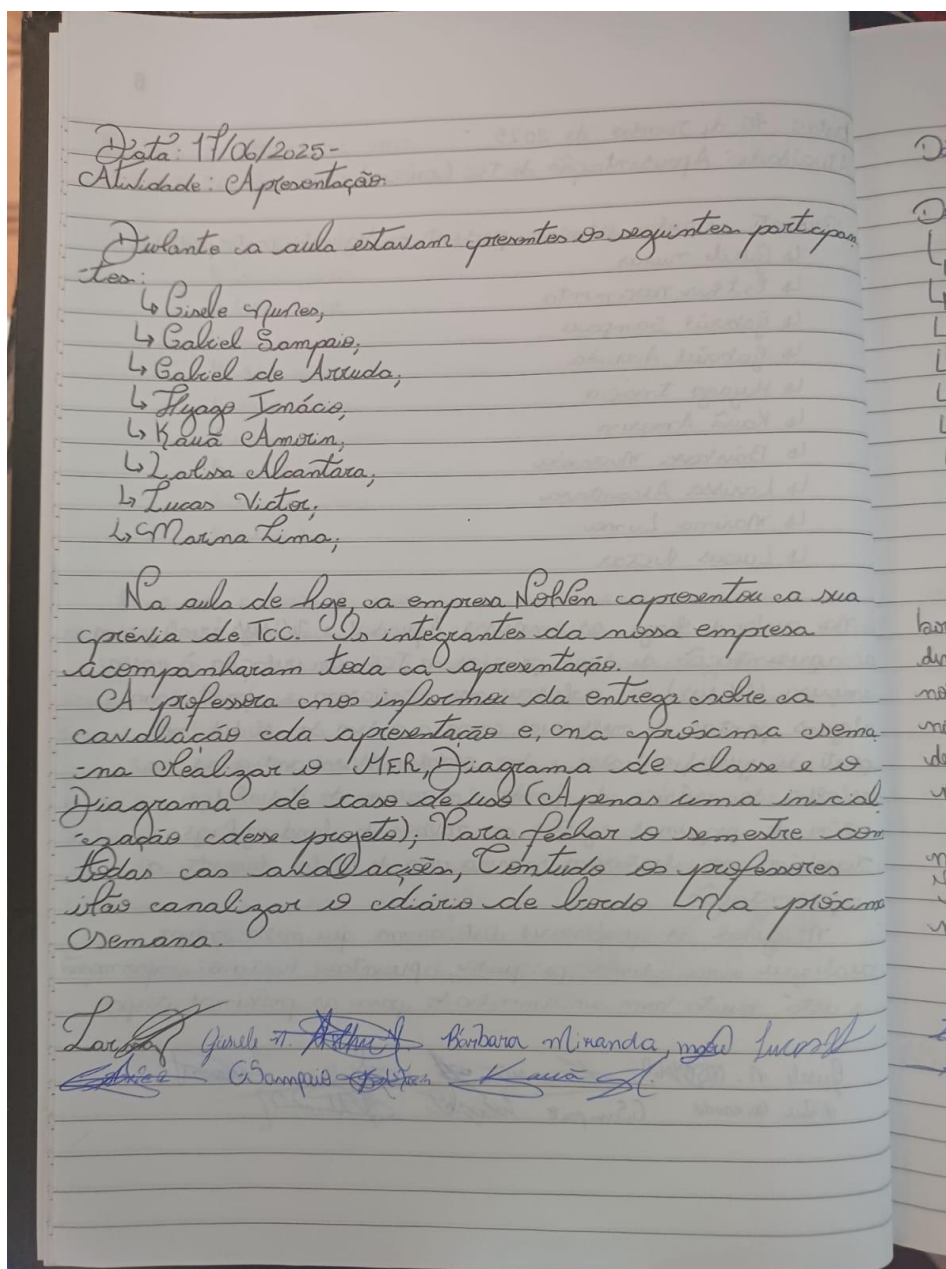 Data: 17/06/2025-
Atividade: Apresentação.
Durante a aula estavam presentes os seguintes participan
-tes:
↳ Gisele Nunes,
↳ Gabriel Sampaio;
↳ Gabriel de Arruda;
↳ Hyago Inácio,
↳ Kauã Amorin;
↳ Larissa Alcantara;
↳ Lucas Victor;
↳ Marina Lima;
Na aula de hoje, a empresa apresentou a sua
prévia de TCC. Os integrantes da nossa empresa
acompanharam toda a apresentação.
A professora nos informou da entrega sobre a
avaliação da apresentação e, na próxima sema
-na Realizar o MER, Diagrama de classe e o
Diagrama de caso de uso (Apenas uma inicial
-ização desse projeto); Para fechar o semestre com
todas as avaliações, Contudo os professores
irão analizar o diário de bordo na próxima
semana.
Gisele n. Bárbara Miranda, Lucas
GSampaio Kauã A.